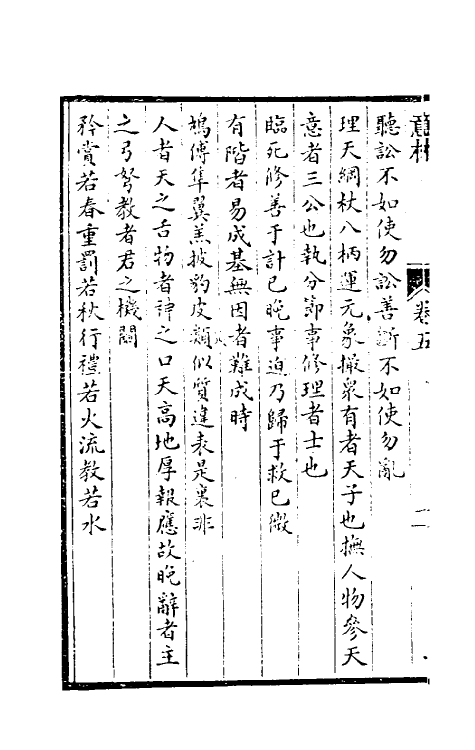 意林 卷五 二
聽訟不如使勿訟善斷不如使勿亂
理天綱杖八柄運元象撮衆有者天子也撫人物參天
意者三公也執分節事修理者士也
臨死修善于計已晚事迫乃歸于救已微
有階者易成基無因者難成時
鳩傅隼翼羔披豹皮類似質違表是裏非
人者天之舌物者神之口天高地厚報應故晚辭者主
之弓弩教者君之機關
矜賞若春重罰若秋行禮若火流教若水